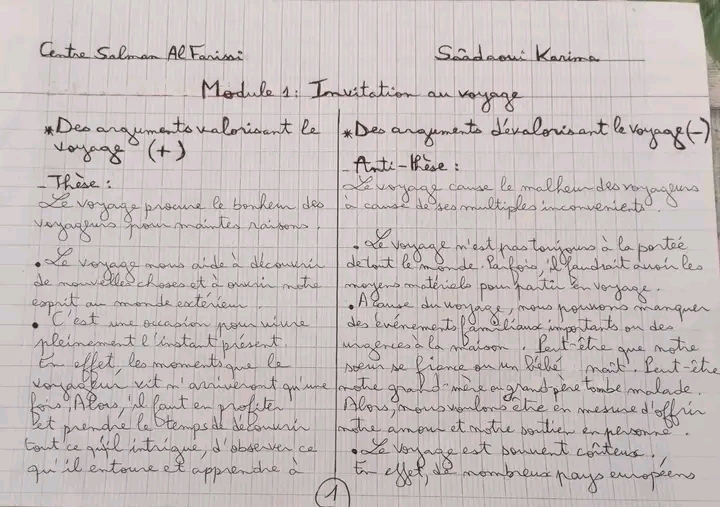 Centre Salman Al Farissi
Saâdaoui Karima
Module 1: Invitation au voyage
* Des arguments valorisant le
voyage (+)
- Thèse :
Le voyage procure le bonheur des
voyageurs pour maintes raisons.
• Le voyage nous aide à découvrir
de nouvelles choses et à ouvrir notre
esprit au monde extérieur.
• C'est une occasion pour vivre
pleinement l'instant présent.
En effet, les moments que le
voyageur vit n'arriveront qu'une
fois, Alors, il faut en profiter
et prendre le temps de découvrir
tout ce qu'il intrigue, d'observer ce
qu'il entoure et apprendre à
* Des arguments dévalorisant le voyage (-)
- Anti-thèse :
Le voyage cause le malheur des voyageurs
à cause de ses multiples inconvenients.
• Le voyage n'est pas toujours à la porteé
de tout le monde. Parfois, il faudrait avoir les
moyens matériels pour partir en voyage.
• A cause du voyage, nous pouvons manquer
des événements familiaux importants ou des
urgences à la maison. Peut-être que notre
soeur se fiance ou un bébé naît. Peut-être
notre grand-mère ou grand-père tombe malade.
Alors, nous voulons être en mesure d'offrir
notre amour et notre soutien en personne.
• Le voyage est souvent coûteux.
En effet, de nombreux pays européens
1